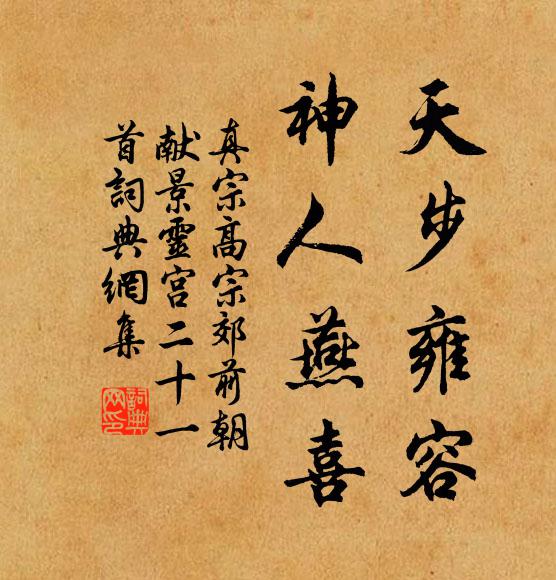 天步雍容
神人燕喜
真宗高宗郊前朝
献景靈宮二十一
首詞典網集
詞典網印